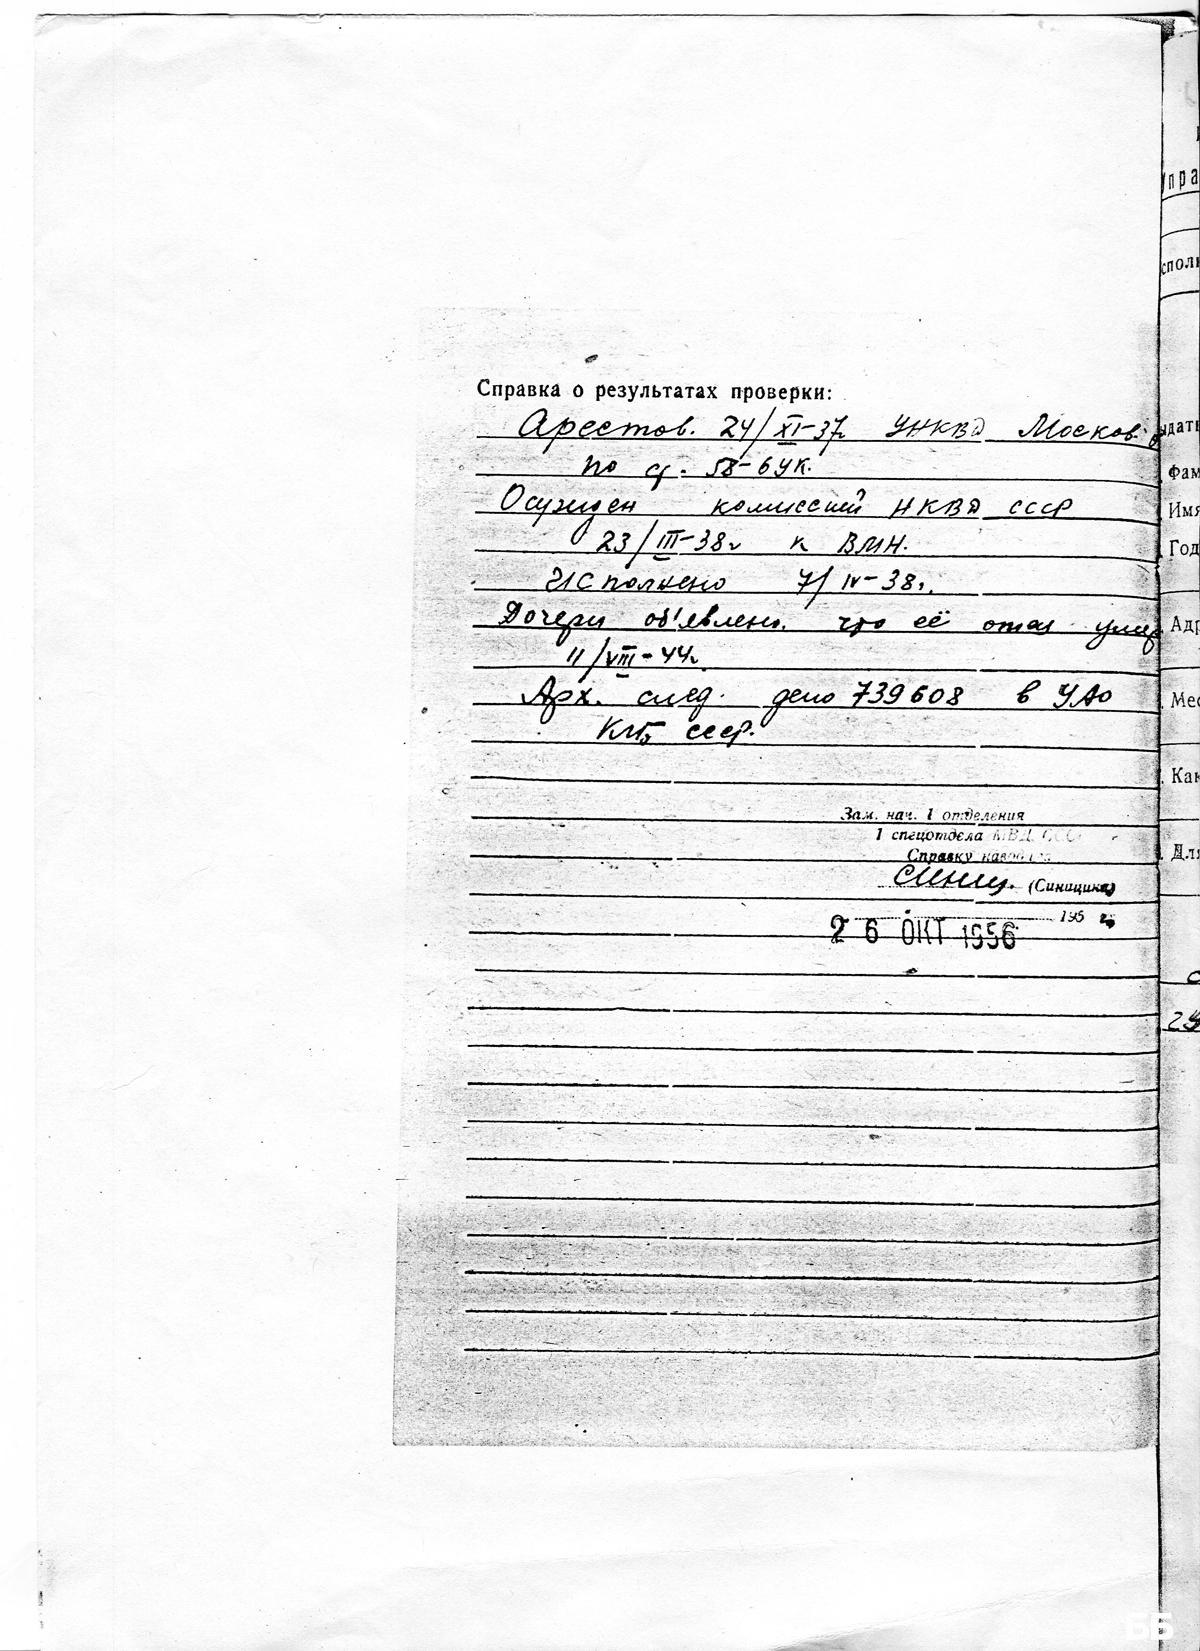 Справка о результатах проверки:
Арестов. 24/XI-37г УНКВД Москов.
по ст. 58-6 УК.
Осужден комиссией НКВД СССР
23/III-38г к ВМН.
Исполнено 7/IV-38г.
Дочери об'явлено, что её отец умер
11/VIII-44г.
Арх. след. дело 739608 в УАО
КГБ СССР.
Зам. нач. 1 отделения
1 спецотдела МВД СССР
Справку наводил
Синиц. (Синицина)
195 г.
26 ОКТ 1956
Упра
сполн
ыдать
Фам
Имя
Год
Адр
Мес
Как
Для
ББ